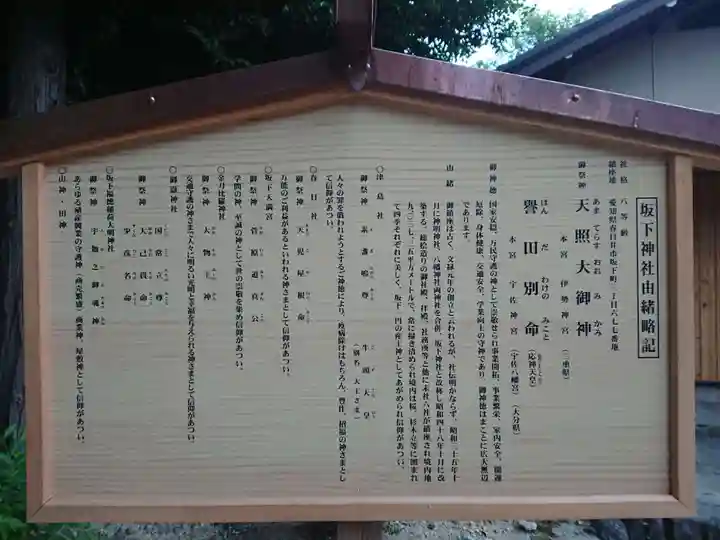 坂下神社由緒略記
社格 八等級
鎮座地 愛知県春日井市坂下町一丁目六七七番地
あま てらす おお み かみ
天照大御神
本宮 伊勢神宮 (三重県)
ほん だ わけの みこと
誉田別命(応神天皇)
本宮 宇佐神宮 (宇佐八幡宮)(大分県)
御神徳 国家安穏、万民守護の神として崇敬せられ事業開拓、事業繁栄、家内安全、開運
厄除、身体健康、交通安全、学業向上の守神であり、御神徳はまことに広大無辺
であります。
由緒 御鎮座は古く、文禄元年の創立と云われるが、社伝明かならず、昭和三十五年十
月に神明神社、八幡神社両神社を合併、坂下神社と改称し昭和四十八年十月に改
築する。銅桧造りの御社殿、拝殿、社務所等と他に末社八社が鎮座され境内地
九、〇三七、三五平方メートルで、常に掃き清められ境内は桜、杉木立等に囲まれ
て四季それぞれに美しく、坂下一円の産土神としてあがめられ信仰があつい。
〇津島社
御祭神 素盞嗚尊 牛頭天皇
(別名 天王さま)
人々の罪を祓われようとするご神徳により、疫病除けはもちろん、豊作、招福の神さまとし
て信仰があつい。
〇春日社
御祭神 天児屋根命
万能のご利益があるといわれる神さまとして信仰があつい。
〇坂下天満宮
御祭神 菅原道真公
学問の神、至誠の神として世の崇敬を集め信仰があつい。
〇金刀比羅神社
御祭神 大物主神
交通守護の神さまで人々に明るい光明と幸福を与えられる神さまとして信仰があつい。
〇御嶽神社
御祭神 国常立尊
大己貴命
少彦名命
〇坂下福徳稲荷大明神社
御祭神 宇迦之御魂神
あらゆる殖産興業の守護神(商売繁盛)商業神、屋敷神として信仰があつい。
〇山神・田神